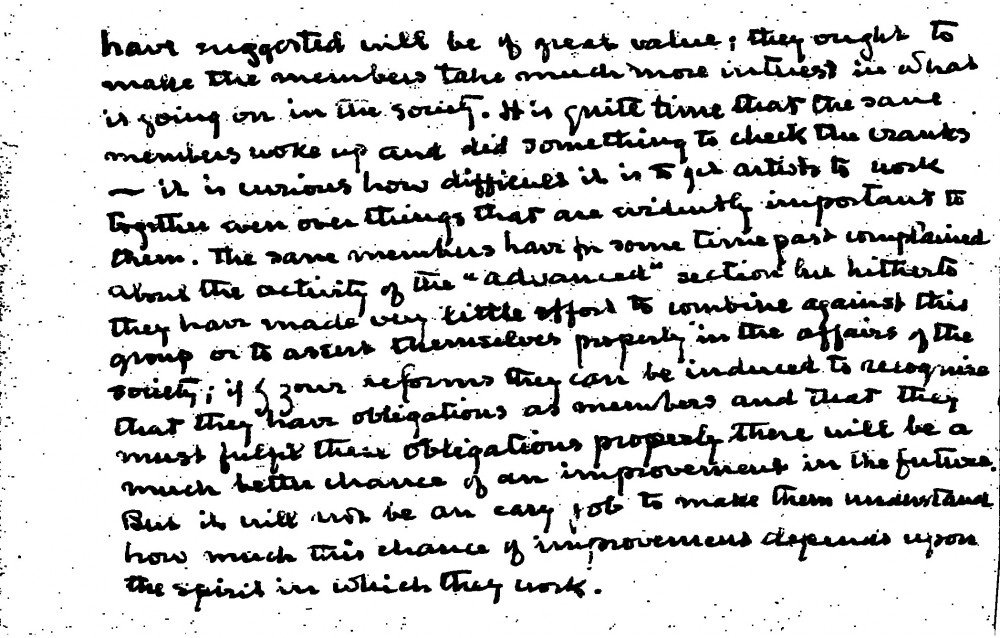 have suggested will be of great value; they ought to
make the members take much more interest in what
is going on in the society. It is quite time that the sane
members woke up and did something to check the cranks
— it is curious how difficult it is to get artists to work
together even over things that are evidently important to
them. The sane members have for some time past complained
about the activity of the "advanced" section but hitherto
they have made very little effort to combine against this
group or to assert themselves properly in the affairs of the
society; if by your reforms they can be induced to recognise
that they have obligations as members and that they
must fulfil these obligations properly there will be a
much better chance of an improvement in the future.
But it will not be an easy job to make them understand
how much this chance of improvement depends upon
the spirit in which they work.